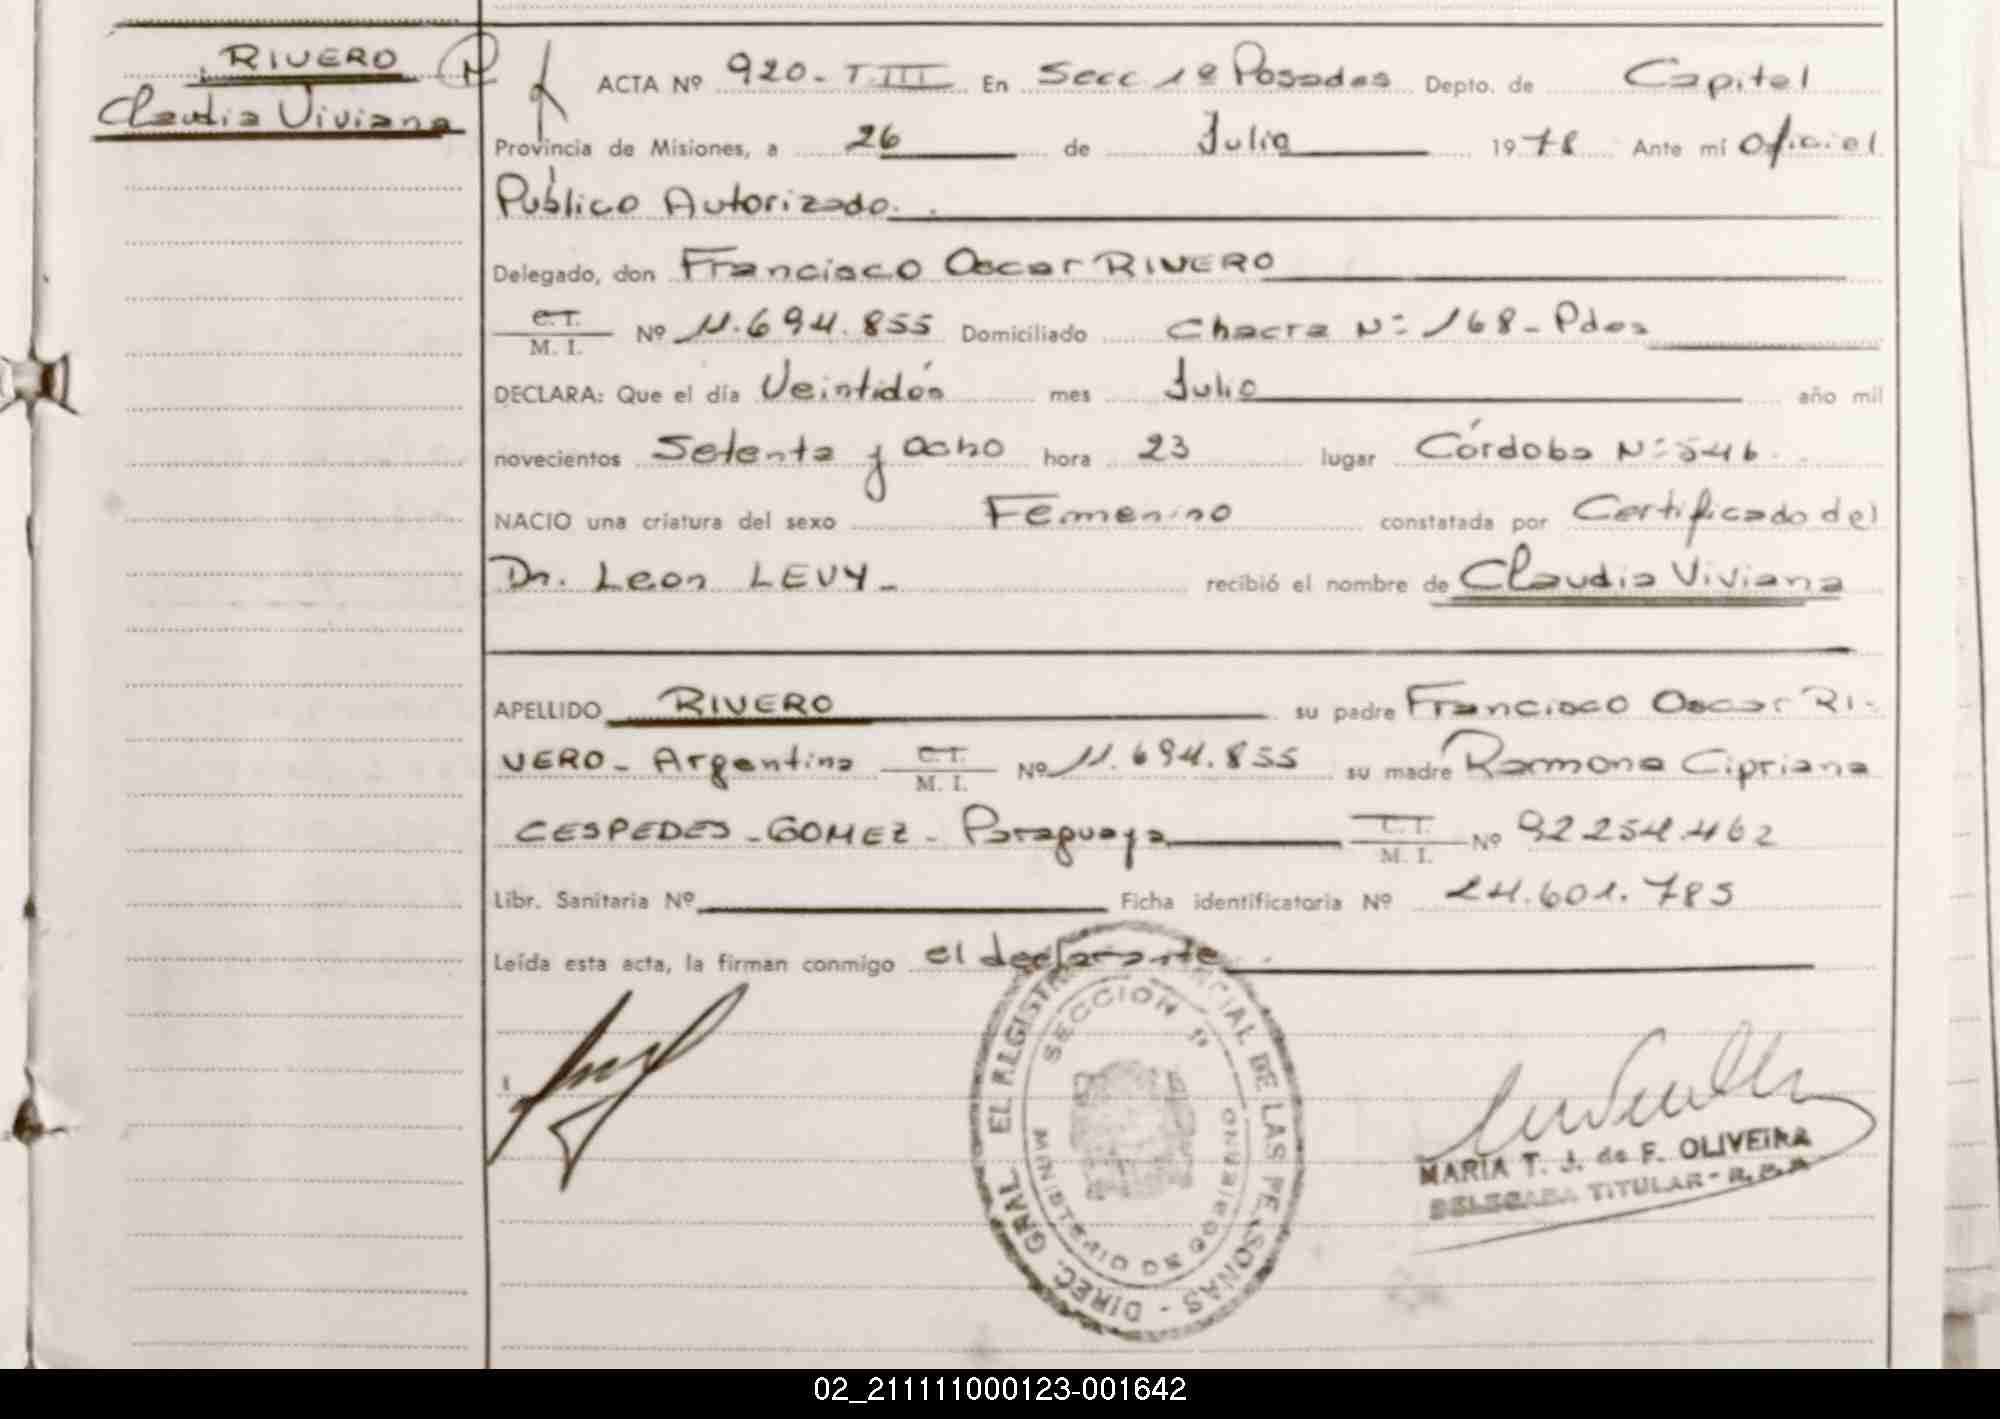 RIVERO
Claudia Viviana
N
ACTA Nº 920- T.III En Secc 1º Posadas Depto. de Capital
Provincia de Misiones, a 26 de Julio 1978 Ante mí Oficial
Público Autorizado.
Delegado, don Francisco Oscar RIVERO
C.I. M. I. Nº 11.694.855 Domiciliado Chacra Nº 168- Pdas
DECLARA: Que el día Veintidós mes Julio año mil
novecientos Setenta y ocho hora 23 lugar Córdoba Nº 546.
NACIO una criatura del sexo Femenino constatada por Certificado del
Dr. Leon LEVY- recibió el nombre de Claudia Viviana
APELLIDO RIVERO su padre Francisco Oscar RI-
VERO- Argentino C.I. M. I. Nº 11.694.855 su madre Ramona Cipriana
CESPEDES-GOMEZ- Paraguaya C.I. M. I. Nº 92254.462
Libr. Sanitaria Nº Ficha identificatoria Nº 24.601.785
Leída esta acta, la firman conmigo el declarante.
DIREC. GRAL. EL REGISTR CIAL DE LAS PE SONAS -
SECCION 1ª
MINISTERIO DE GOBIERNO
MARIA T. J. de F. OLIVEIRA
DELEGADA TITULAR-
02_211111000123-001642